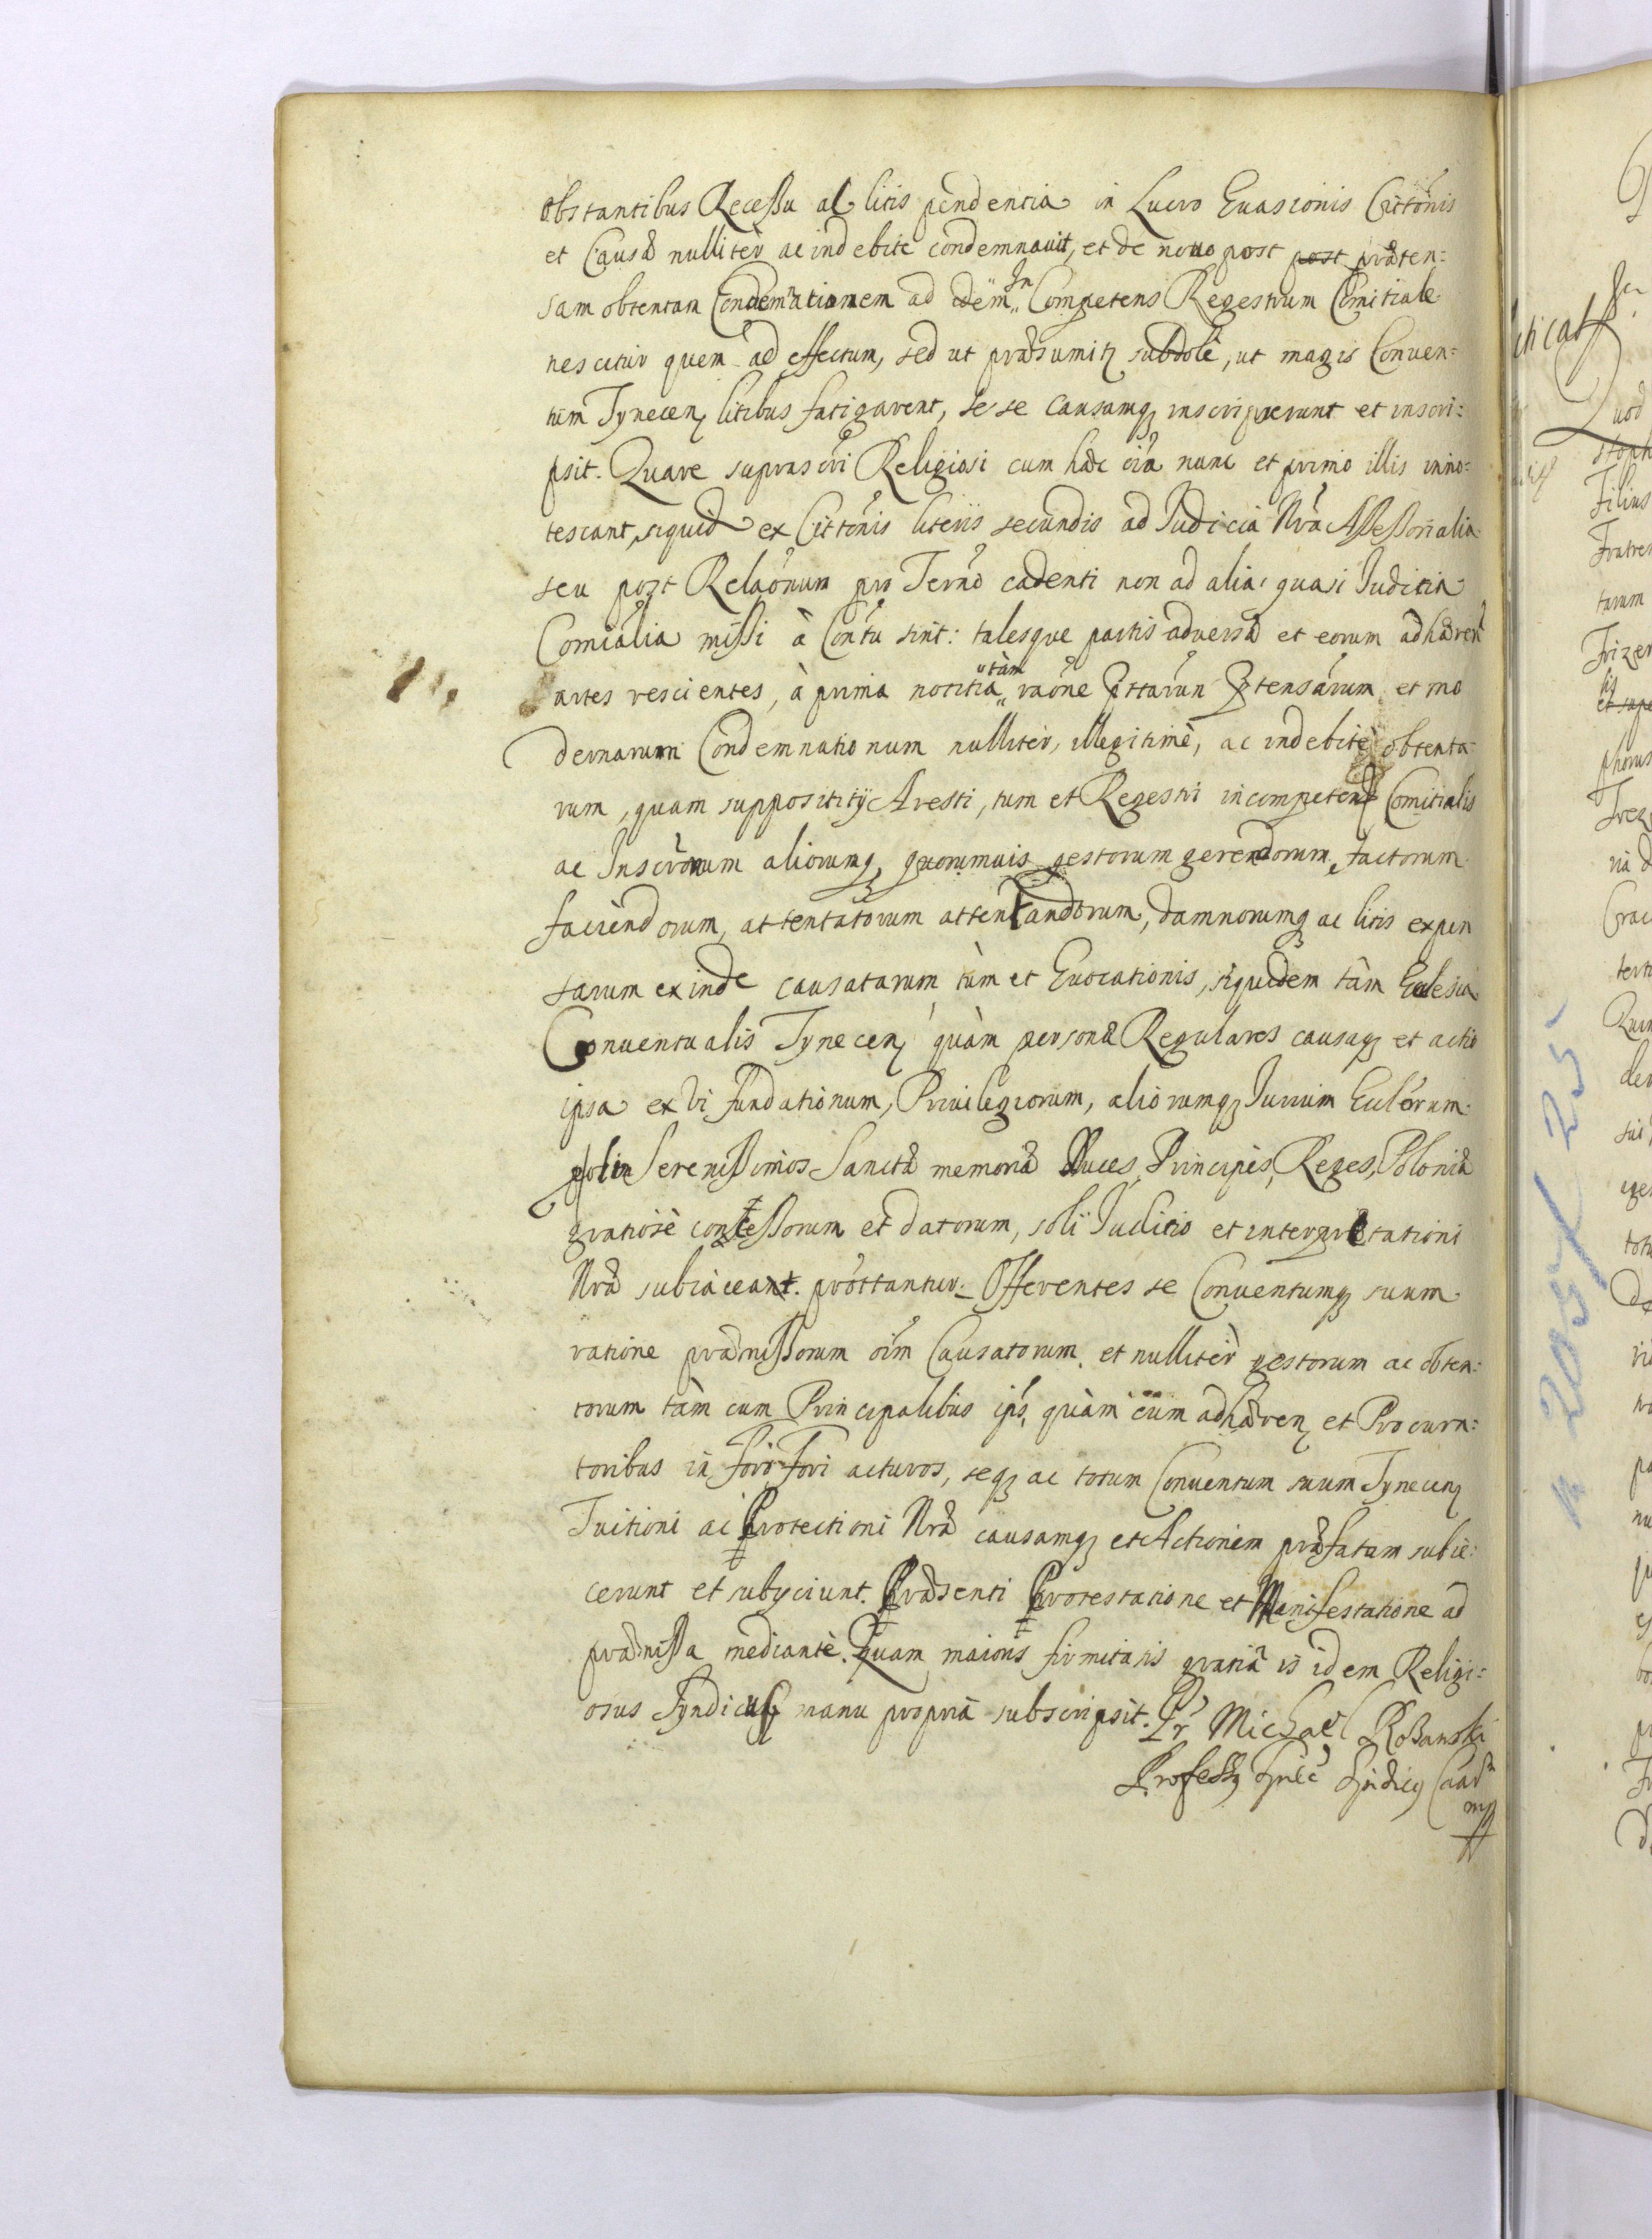 obstantibus Recessu ac litis pendentia in Lucro Evasionis Cittõnis
et Causæ nulliter ac indebite condemnavit, et de novo post post præten:
sam obtentam Condemnationem ad idem In Competens Regestrum Comitiale
nescitur quem ad effectum, sed ut præsumitz subdole, ut magis Conven=
tum Tynecen litibus fatigarent, se se causamq inscripserunt et inscri:
psit. Quare suprascri Religiosi cum hæc oia nunc et primo illis inno=
tescant, siquid ex Cittonis literis secundis ad Judicia Nra Assessorialia
seu post Relaonum pro Termo cadenti non ad alia quasi Juditia
Comialia missi à Contu sint: talesque partis adversæ et eorum adhæren
artes rescientes, à prima notitia tàm raone Pttarum Ptensarum et mo
dernarum Condemnationum nulliter, illegitimè, ac indebitè obtenta=
rum, quam supposititij Aresti, tum et Regestri incompetens Comitialis
ac Inscronum aliorumq quorumvis gestorum gerendorum, factorum
faciendorum, attentatorum attentandorum, damnorumq ac litis expen
sarum exinde causatarum tùm et Evocationis, siquidem tàm Eclesia
Conventualis Tynecen quàm personæ Regulares causaq et actio
ipsa ex vi fundationum, Privilegiorum, aliorumq Jurium Eccleorum
p olim Serenissimos Sanctæ memoriæ Duces, Principes, Reges, Poloniæ
gratiosè concessorum et datorum, soli Juditio et interpretationi
Nræ subiaceant. prottantur. Offerentes se Conventumq suum
ratione præmissorum oim Causatorum et nulliter gestorum ac obten:
torum tàm cum Principalibus ips, quàm cum adhæren et Procura:
toribus in Foro Fori acturos, seq ac totum Conventum suum Tynecen
Tuitioni ac Protectioni Nræ causamq et Actionem præfatam subie:
cerunt et subyciunt. Præsenti Protestatione et Manifestatione ad
præmissa mediante. Quam maioris firmitatis gratiâ is idem Religi:
osus Syndicus manu propriâ subscripsit. Fr Michael
Profess
mp